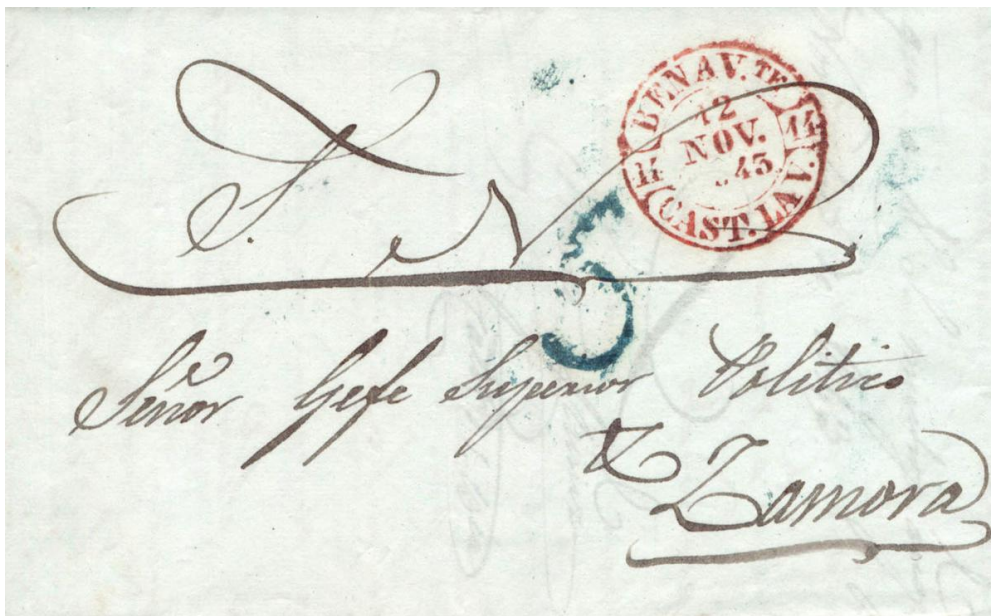 S. N.
BENAV.TE
12
NOV.
11 14
.845
CAST. LA V.
5
Señor Gefe Superior Politico
de
Zamora